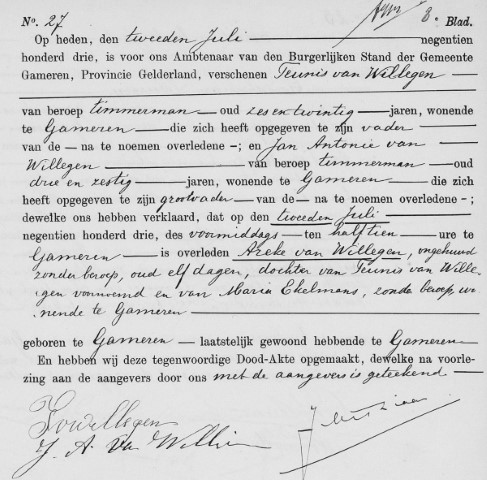 No. 27 8e Blad.
Op heden, den tweeden Juli negentien
honderd drie, is voor ons Ambtenaar van den Burgerlijken Stand der Gemeente
Gameren, Provincie Gelderland, verschenen Teunis van Willegen
van beroep timmerman — oud zes en twintig — jaren, wonende
te Gameren — die zich heeft opgegeven te zijn vader
van de — na te noemen overledene -; en Jan Antonie van
Willegen — van beroep timmerman — oud
drie en zestig — jaren, wonende te Gameren — die zich
heeft opgegeven te zijn grootvader — van de — na te noemen overledene -;
dewelke ons hebben verklaard, dat op den tweeden Juli
negentien honderd drie, des voormiddags — ten half tien — ure te
Gameren — is overleden Areke van Willegen, ongehuwd
zonder beroep, oud elf dagen, dochter van Teunis van Wille-
gen voornoemd en van Maria Ekelmans, zonder beroep, wo-
nende te Gameren
geboren te Gameren — laatstelijk gewoond hebbende te Gameren
En hebben wij deze tegenwoordige Dood-Akte opgemaakt, dewelke na voorle-
zing aan de aangevers door ons met de aangevers is geteekend
J. A. Van Willi